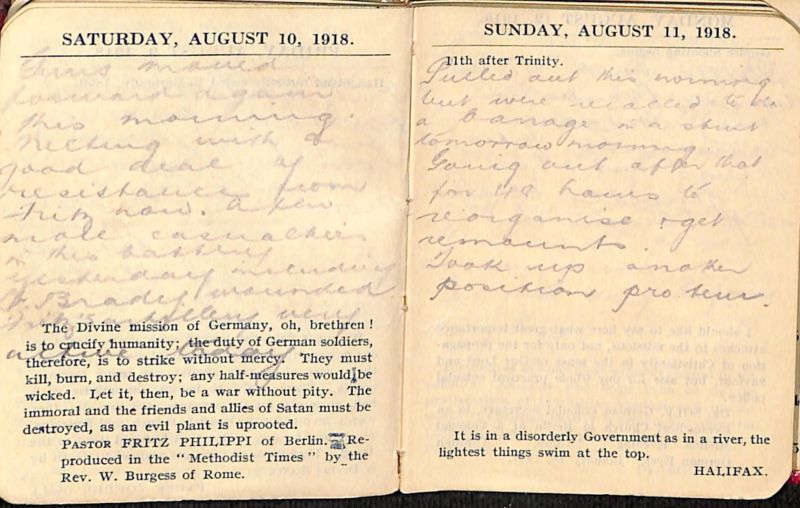 SATURDAY, AUGUST 10, 1918.
Guns moved
forward again
this morning.
Meeting with a
good deal of
resistance from
Fritz now. A few
more casualties
in this battery
yesterday including
Brady wounded.
Fritz artillery very
active today
The Divine mission of Germany, oh, brethren!
is to crucify humanity; the duty of German soldiers,
therefore, is to strike without mercy. They must
kill, burn, and destroy; any half-measures would be
wicked. Let it, then, be a war without pity. The
immoral and the friends and allies of Satan must be
destroyed, as an evil plant is uprooted.
PASTOR FRITZ PHILIPPI of Berlin. Re-
produced in the "Methodist Times" by the
Rev. W. Burgess of Rome.
SUNDAY, AUGUST 11, 1918.
11th after Trinity.
Pulled out this morning
but were recalled to do
a barrage in a stunt
tomorrow morning.
Going out after that
for 48 hours to
reorganise & get
remounts.
Took up another
position pro tem.
It is in a disorderly Government as in a river, the
lightest things swim at the top.
HALIFAX.